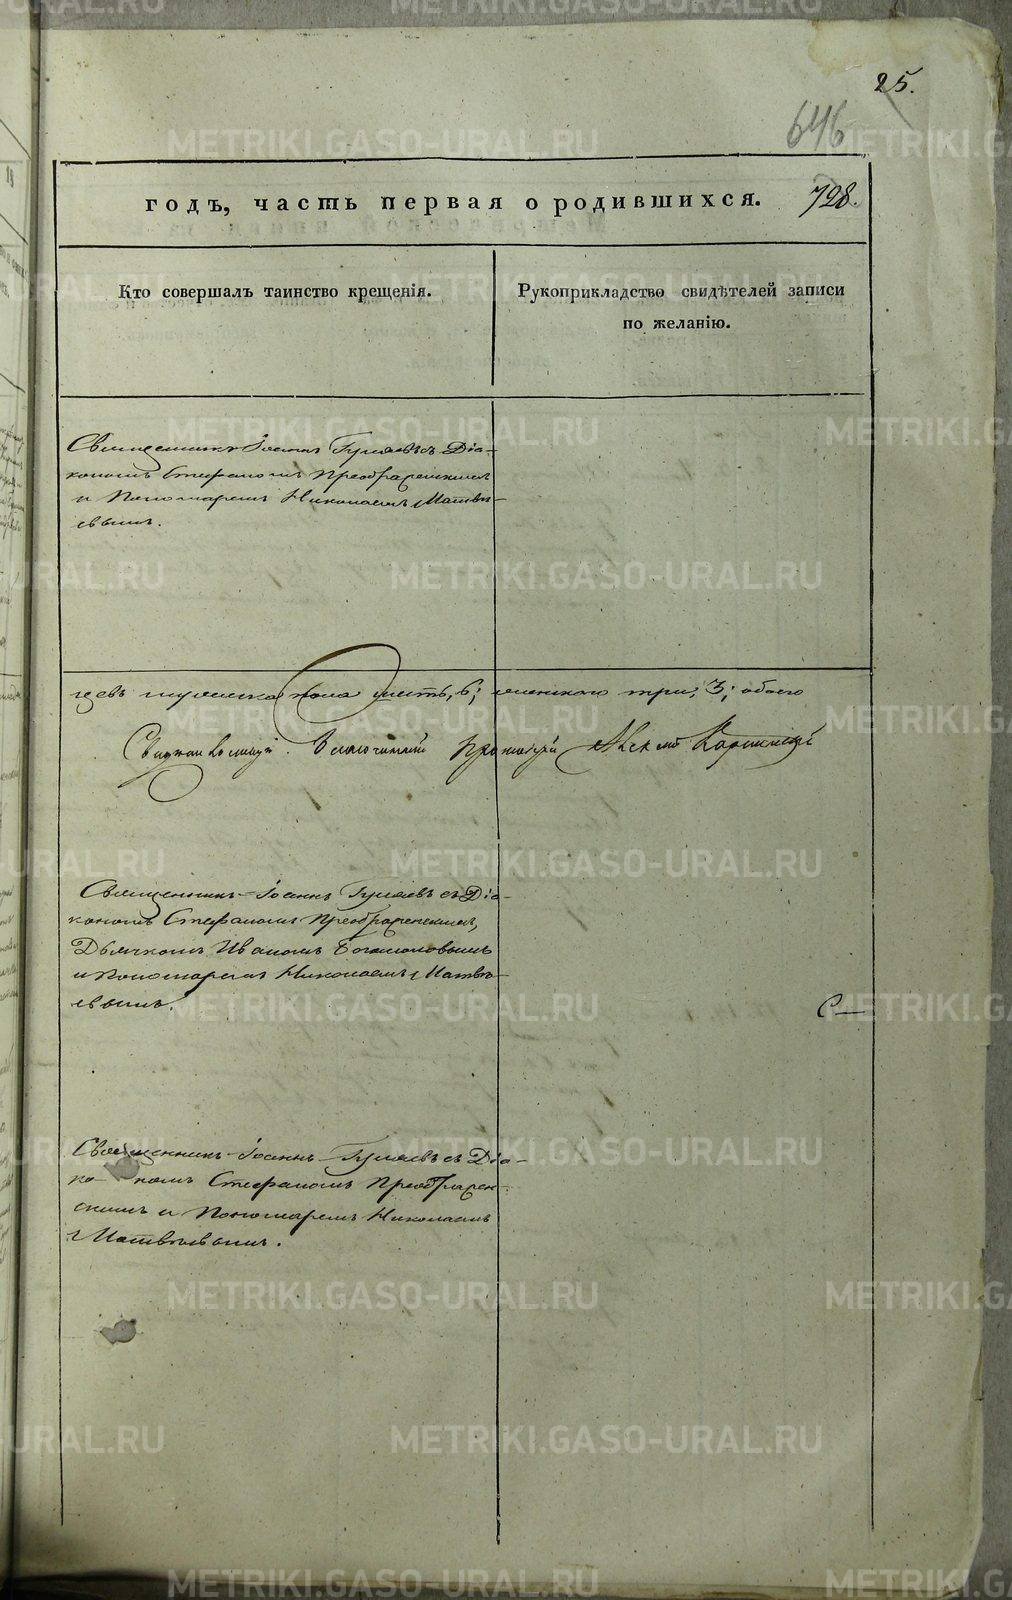 25.
646
годъ, часть первая о родившихся. 728.
Кто совершалъ таинство крещенія.
Рукоприкладство свидѣтелей записи
по желанію.
Священникъ Іоаннъ Гуляевъ съ Діа-
кономъ Стефаномъ Преображенскимъ
и Пономаремъ Николаемъ Матвѣ-
евымъ.
цевъ мужеска пола шесть, 6; женскаго три, 3; обоего
Протоіерей
Священникъ Іоаннъ Гуляевъ съ Діа-
кономъ Стефаномъ Преображенскимъ,
Дьячкомъ Иваномъ Богомоловымъ
и Пономаремъ Николаемъ Матвѣ-
евымъ.
С—
Священникъ Іоаннъ Гуляевъ съ Діа-
кономъ Стефаномъ Преображен-
скимъ и Пономаремъ Николаемъ
Матвѣевымъ.
METRIKI.GASO-URAL.RU